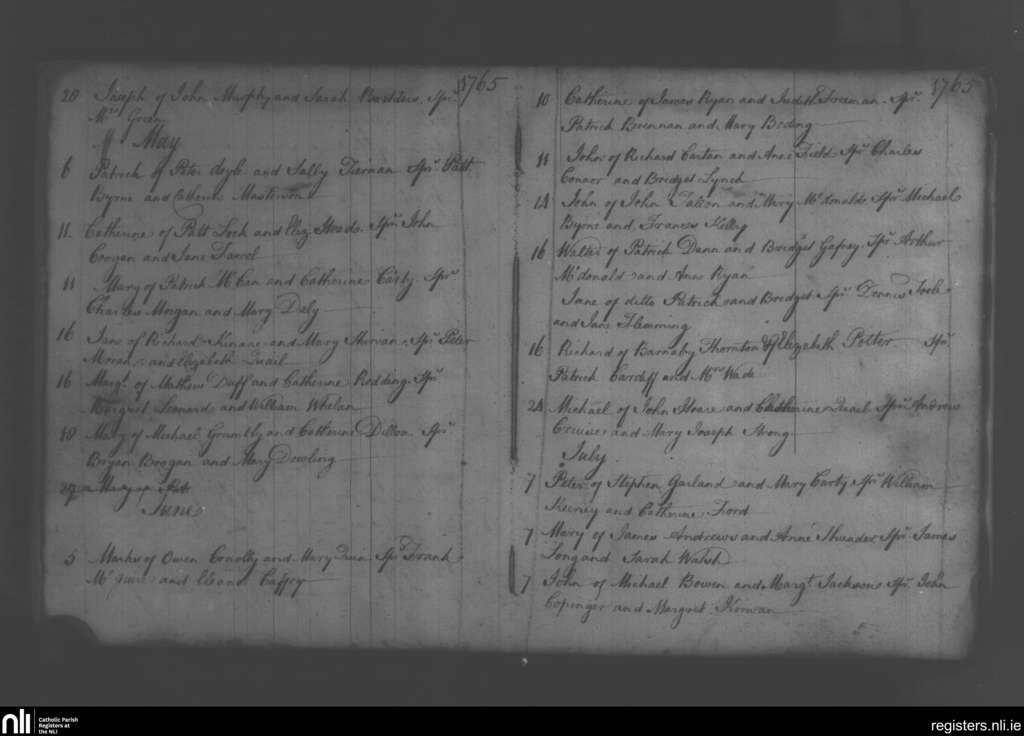 1765
28 Joseph of John Murphy and Sarah Spr
Mrs Green
May
6 Patrick of Peter doyle and Sally Tiernan Sprs Patt
Byrne and Catherin Masterson
11 Catherine of Patt Lock and Eliz: Sprs John
Coogan and Jane Farrel
11 Mary of Patrick McCan and Catherine Carty Sprs
Charles Morgan and Mary Daly
16 Jane of Richard Kinane and Mary Sprs Peter
Moran and Elizabeth Quail
16 Margt of Mathew Duff and Catherine Redding Sprs
Margret Leonard and William Whelan
18 Mary of Michael Grumbly and Catherine Dillon Sprs
Bryan Brogan and Mary Dowling
27 Mary of Patt
June
5 of Owen Conolly and Mary Sprs Frank
and Eleanr Caffry
1765
10 Catherine of James Ryan and Judith Freeman Sprs
Patrick Brennan and Mary
11 John of Richard Cartan and Anne Field Sprs Charles
Connor and Bridget Lynch
14 John of John Talbon and Mary McDonald Sprs Michael
Byrne and Frances Kelly
16 Walter of Patrick Dunn and Bridget Gafney Sprs Arthur
McDonald and Anne Ryan
Jane of ditto Patrick and Bridget Sprs Dennis Toole
and Jane Flemming
16 Richard of Barnaby Thornton & Elizabeth Potter Sprs
Patrick Cardiff and Mrs Wade
24 Michael of John Hoare and Catherine Quail Sprs Andrew
Cruise and Mary Joseph Strong
July
7 Peter of Stephen Garland and Mary Carty Sprs William
Keeney and Catherine Ford
7 Mary of James Andrews and Anne Sprs James
Long and Sarah Walsh
7 John of Michael Bowen and Margt Jackson Sprs John
Copinger and Margret Kirwan
nli
Catholic Parish
Registers at
the NLI
registers.nli.ie